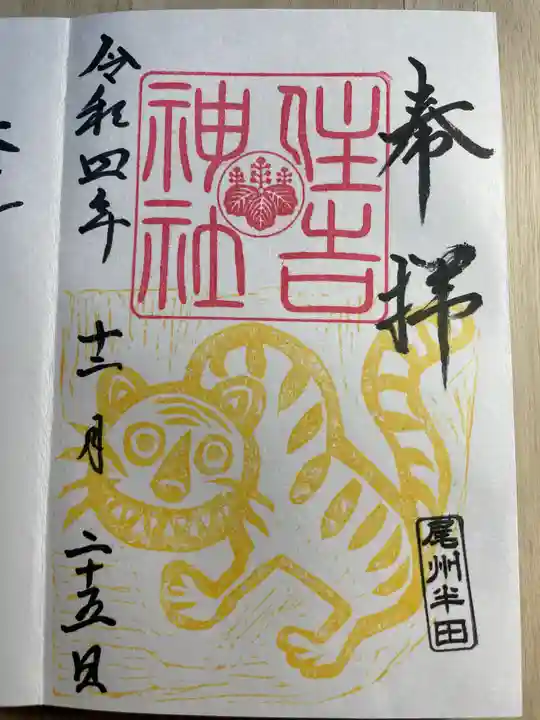 奉拝
住吉
神社
尾州半田
令和四年
十二月
二十五日